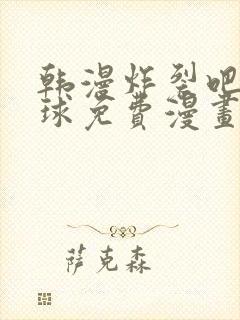 韩漫炸裂吧
球免费漫畫
萨克森